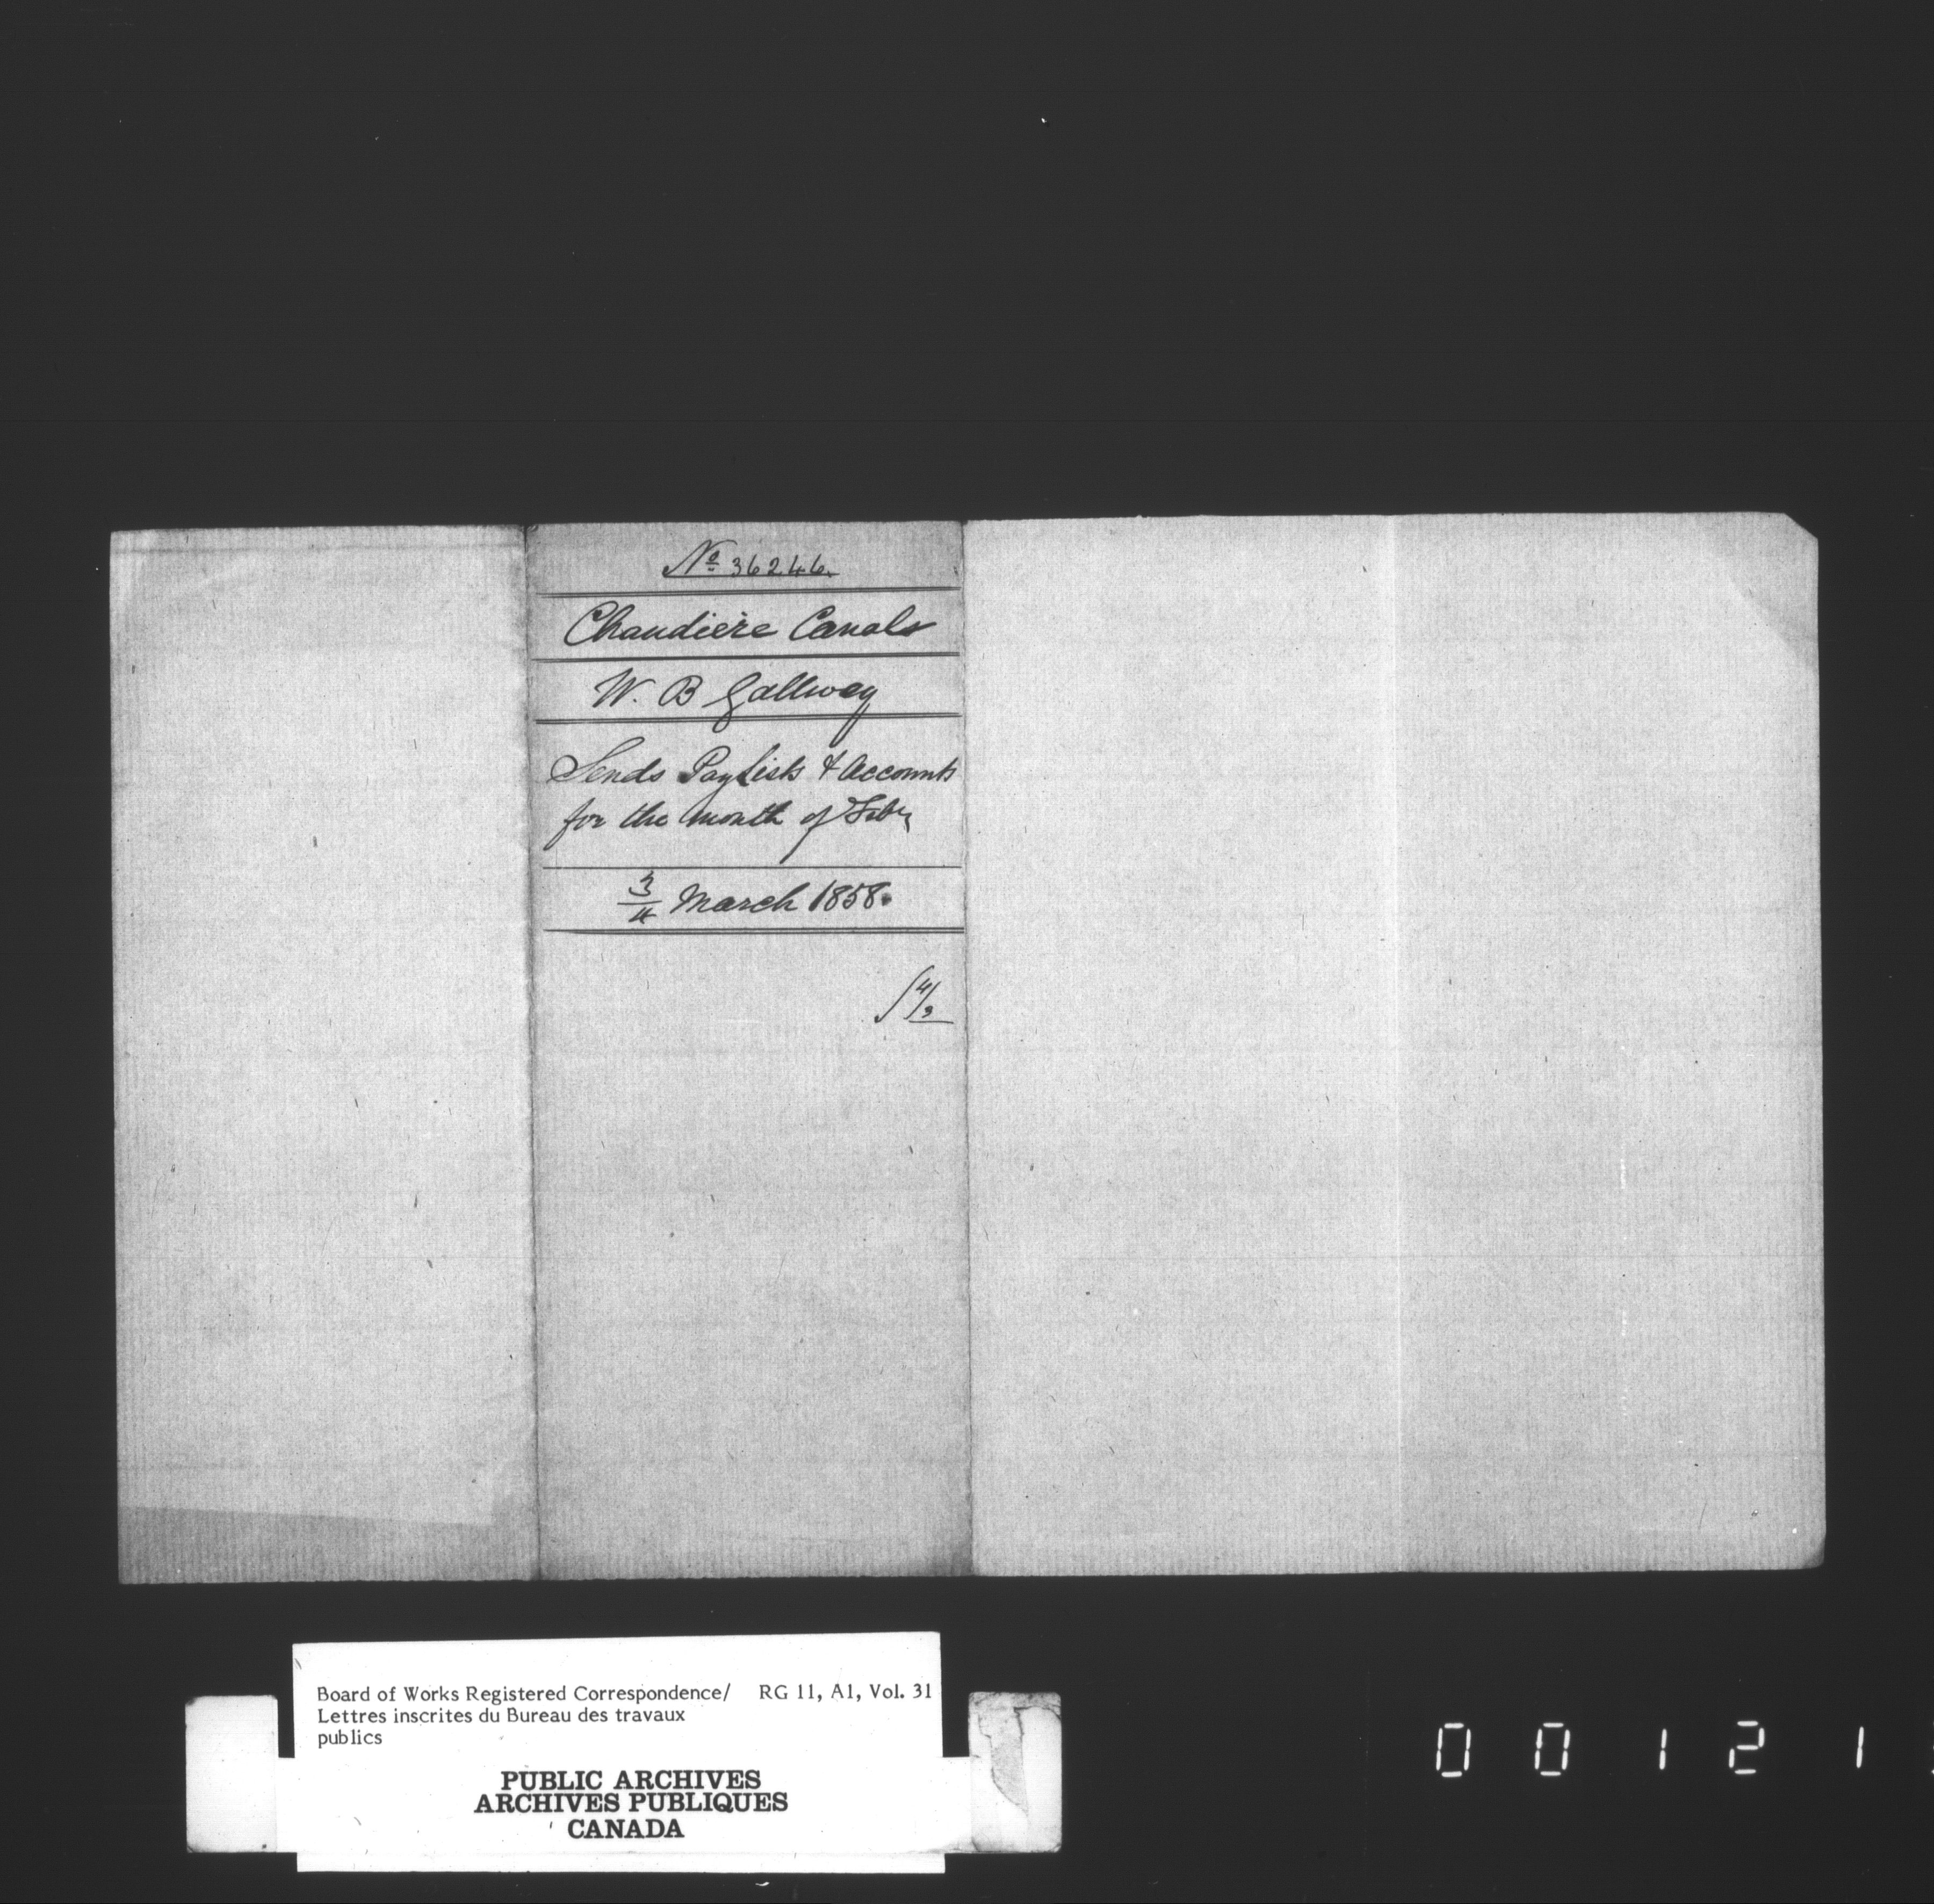 No 36246.
Chaudière Canals
W. B Gallwey
Sends Pay Lists & Accounts
for the month of Feby
3/4 March 1858.
4/3
Board of Works Registered Correspondence/ RG 11, A1, Vol. 31
Lettres inscrites du Bureau des travaux
publics
PUBLIC ARCHIVES
ARCHIVES PUBLIQUES
CANADA
0 0 1 2 1